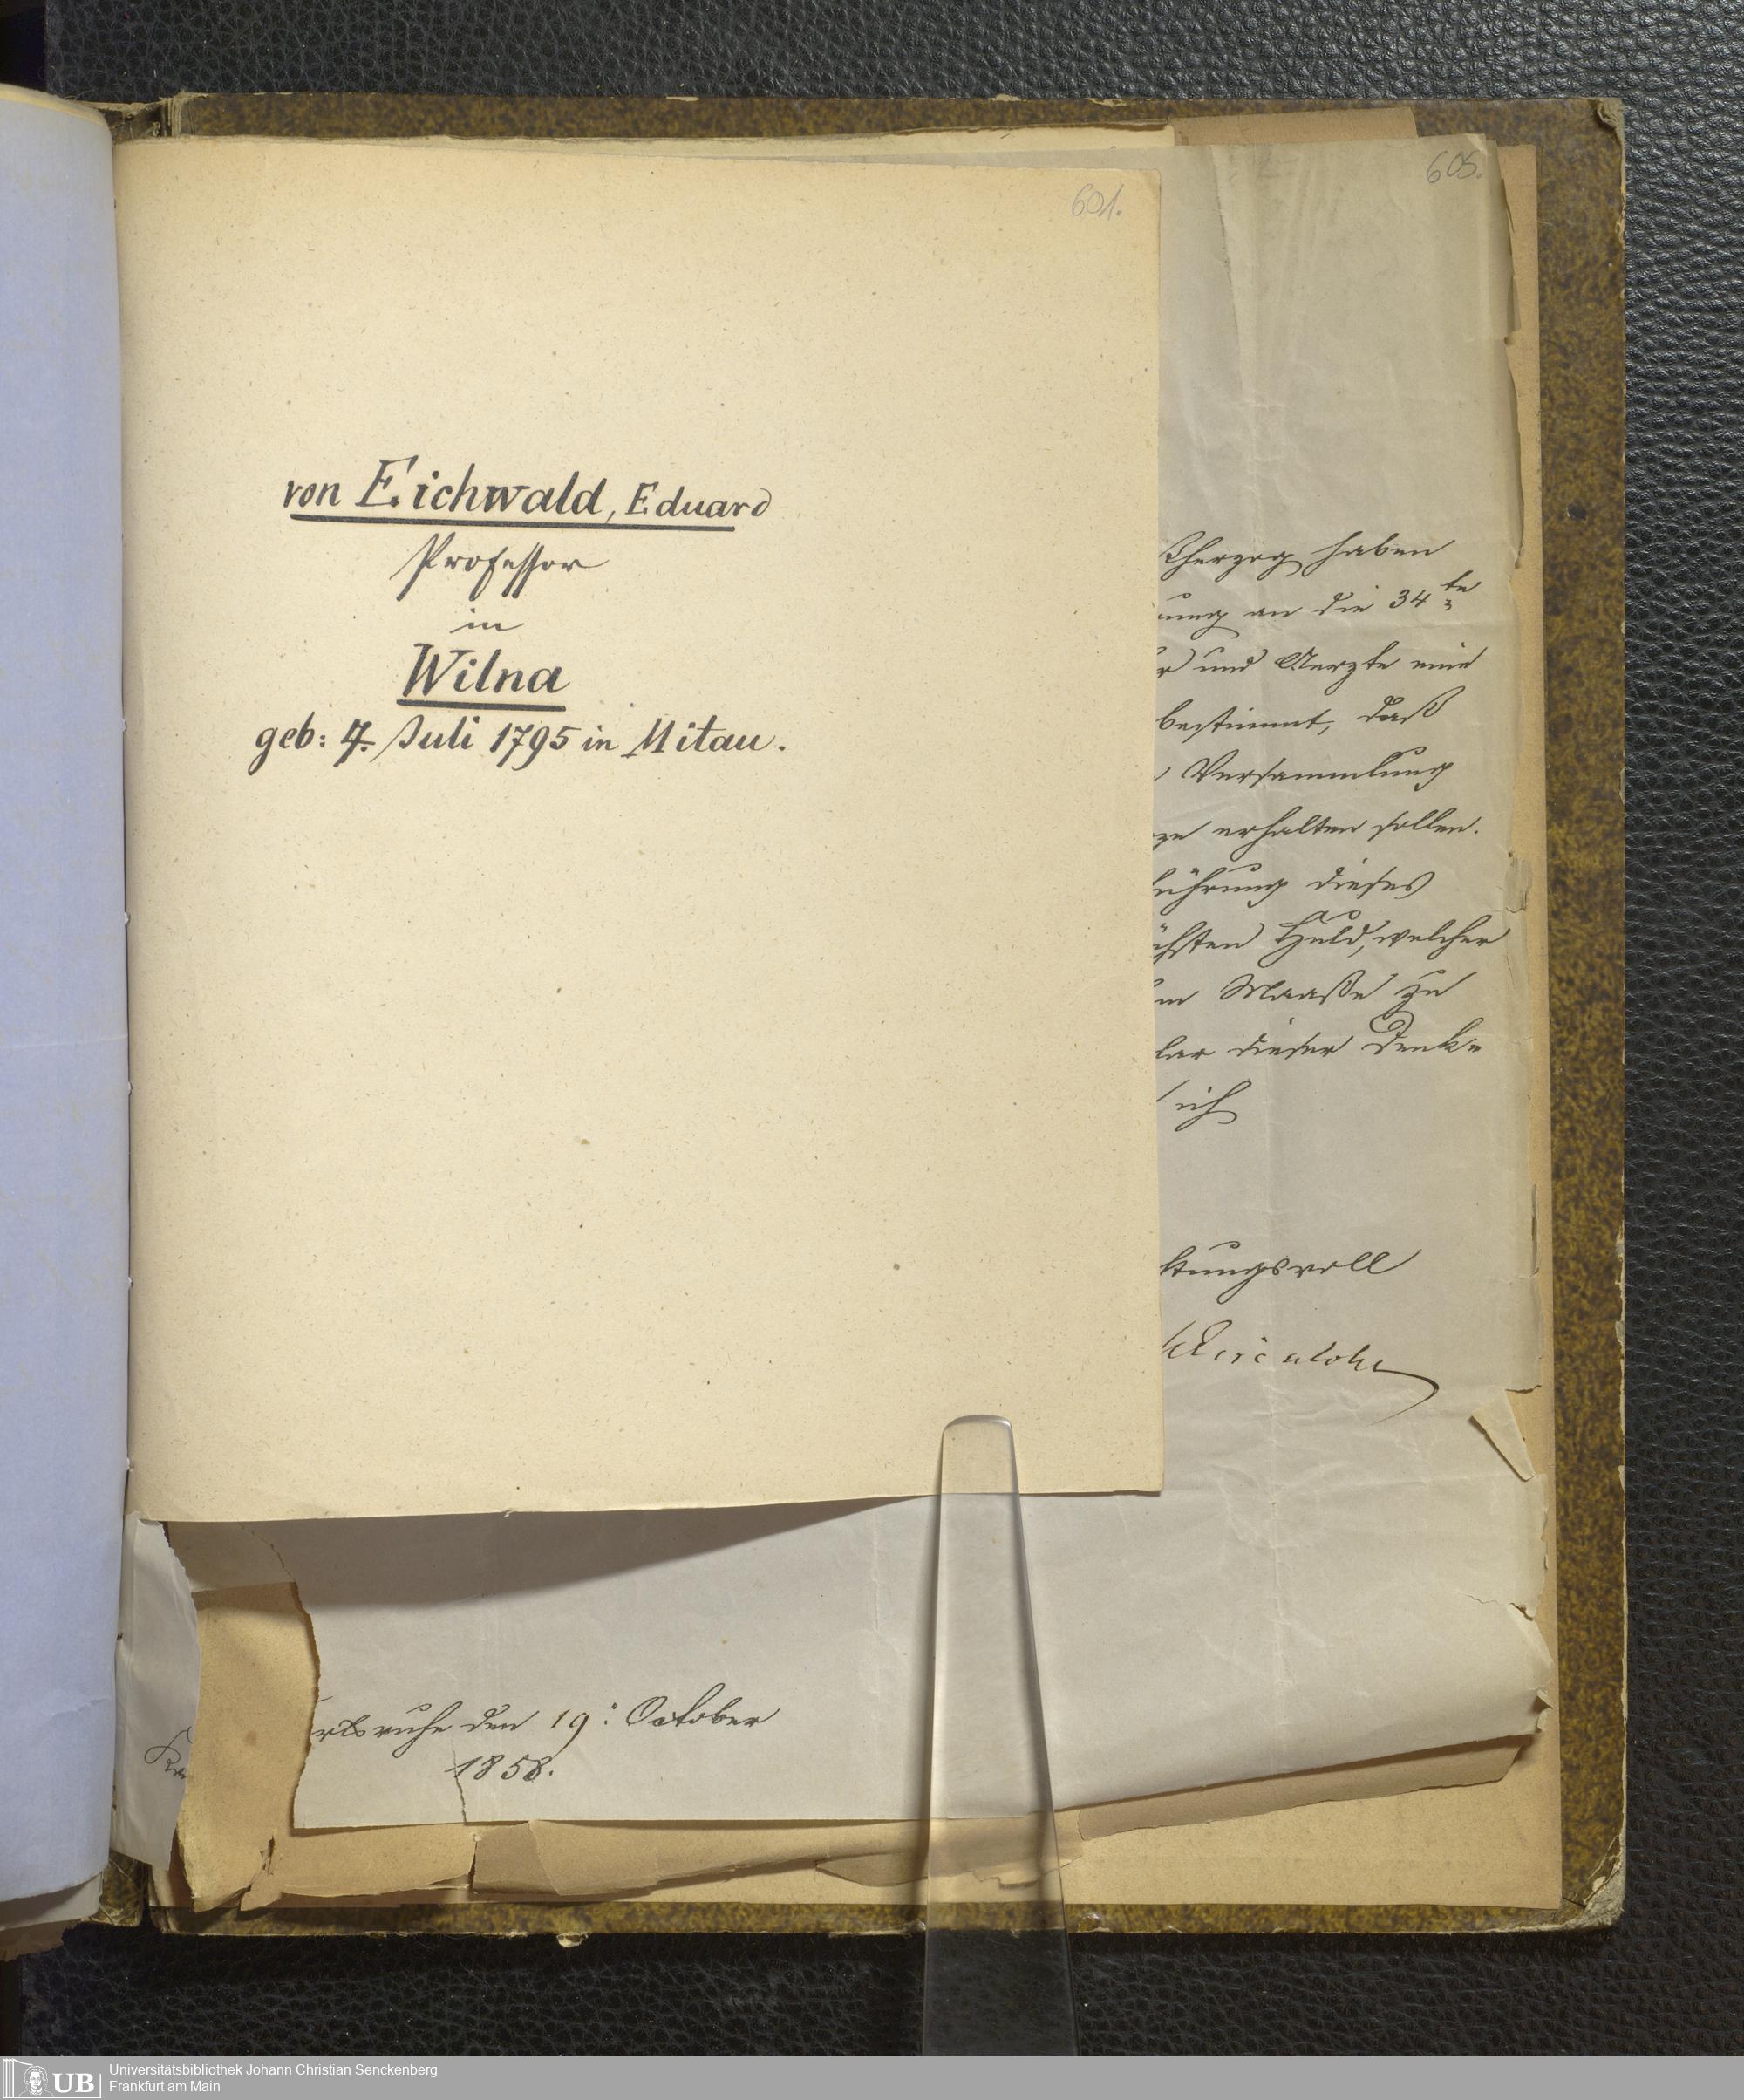 601.
von Eichwald, Eduard
Professor
in
Wilna
geb: 4. Juli 1795 in Mitau.
605.
herzog haben
ung an die 34te
und Aerzte eine
bestimmt, daß
Versammlung
ze erhalten sollen.
führung dieses
chsten Huld, welcher
em Maaße zu
lar dieser Denk=
ich
tungsvoll
rlsruhe den 19: October
1858.
UB
Universitätsbibliothek Johann Christian Senckenberg
Frankfurt am Main